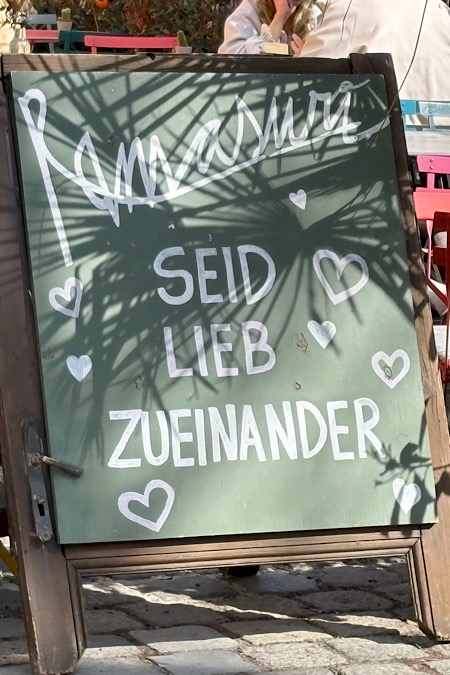 Ramasuri
SEID
LIEB
ZUEINANDER